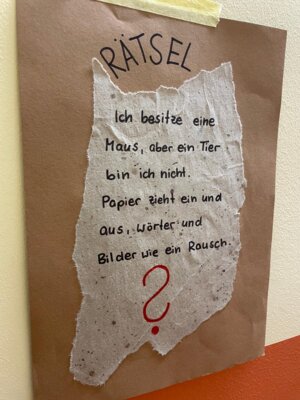 RÄTSEL
Ich besitze eine
Maus, aber ein Tier
bin ich nicht.
Papier zieht ein und
aus, Wörter und
Bilder wie ein Rausch.
?